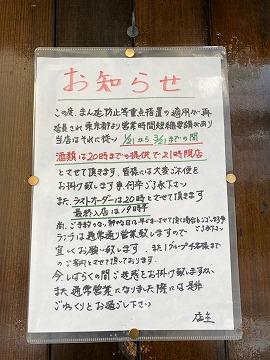 お知らせ
この度、まん延防止等重点措置の適用が再
延長され、東京都より営業時間短縮要請があり
当店はそれに従い 1/21から3/21までの間
酒類は20時までの提供で21時閉店
とさせて頂きます 皆様には大変ご不便を
お掛け致しますが何卒ご了承下さい
また、ラストオーダーは20時とさせて頂きます
最終入店は19時半
ランチは通常通り営業致しますので
宜しくお願い致します また1グループ4名様まで
のご案内とさせて頂いております
今しばらくの間ご迷惑をお掛け致しますが
また通常営業になりました際には是非
ごゆっくりとお過ごし下さい
店主